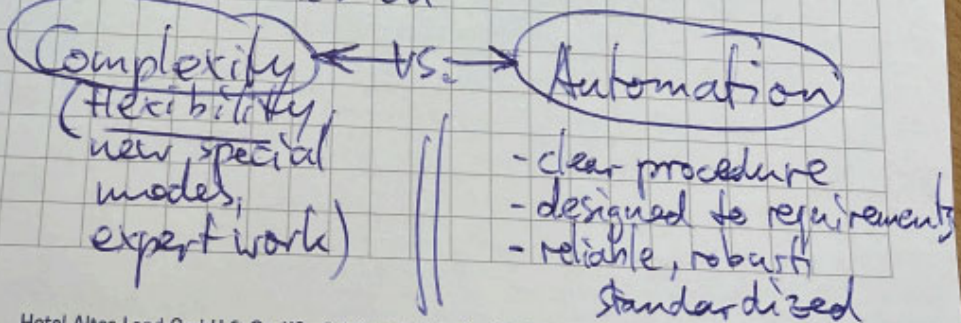 Complexity ←vs.→ Automation
(flexibility,
new, special
modes,
expert work)
- clear procedure
- designed to requirements
- reliable, robust,
standardized
Hotel Altes Land